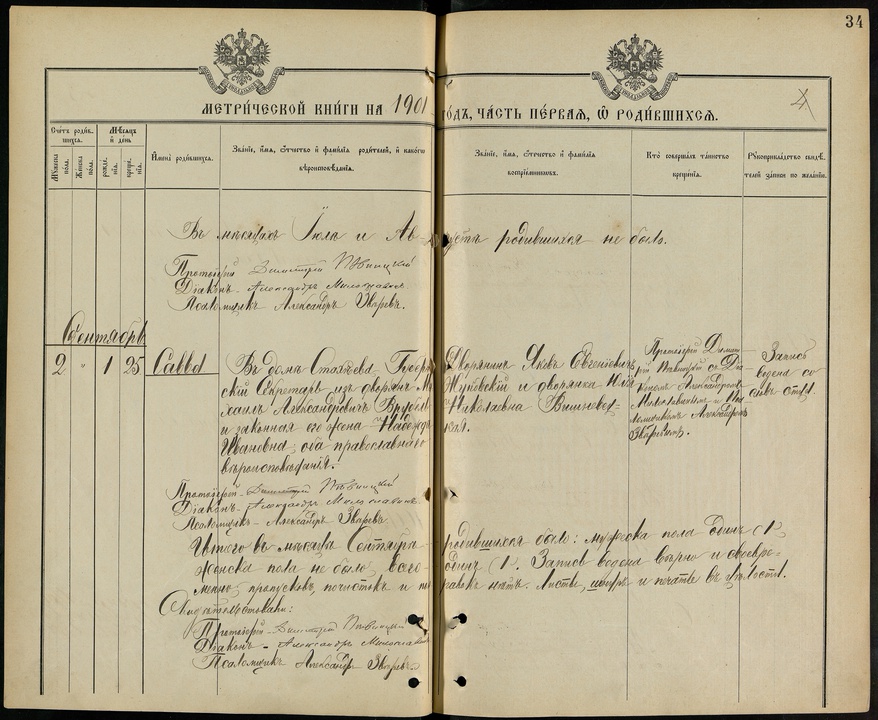 34
МЕТРИ́ЧЕСКОЙ КНИ́ГИ НА 1901 ГО́ДЪ, ЧА́СТЬ ПЕ́РВАЯ, Ѽ РОДИ́ВШИХСЯ.
4
Счетъ роди́вшихся.
Мѣсяцъ и день
Мужеска пола.
Женска пола.
рожденія.
крещенія.
Имена родившихся.
Званіе, имя, отчество и фамилія родителей, и какого
вѣроисповѣданія.
Званіе, имя, отчество и фамилія
воспріемниковъ.
Кто совершалъ таинство
крещенія.
Рукоприкладство свидѣтелей записи по желанію.
Въ мѣсяцахъ Іюлѣ и Августѣ родившихся не было.
Протоіерей Димитрій Пѣвницкій
Діаконъ Александръ Милославинъ
Псаломщикъ Александръ Звѣревъ.
Сентябрь
2 " 1 25 Савва
Въ домѣ Стахѣева. Губернскій Секретарь изъ дворянъ Михаилъ Александровичъ Врубель и законная его жена Надежда Ивановна, оба православнаго вѣроисповѣданія.
Дворянинъ Яковъ Евгеніевичъ
Жуковскій и дворянка
Николаевна
Протоіерей Димитрій Пѣвницкій съ Діакономъ Александромъ
Милославинымъ и Псаломщикомъ Александромъ
Звѣревымъ.
Запись
ведена со
словъ отца.
Протоіерей - Димитрій Пѣвницкій
Діаконъ - Александръ Милославинъ
Псаломщикъ - Александръ Звѣревъ
Итого въ мѣсяцѣ Сентябрѣ родившихся было: мужеска пола одинъ (1
женска пола не было, всего одинъ (1. Запись ведена вѣрно и своевременно, пропусковъ, почистокъ и поправокъ нѣтъ. Листы, шнуръ и печать въ цѣлости.
Свидѣтельствовали:
Протоіерей - Димитрій Пѣвницкій
Діаконъ - Александръ Милославинъ
Псаломщикъ Александръ Звѣревъ.